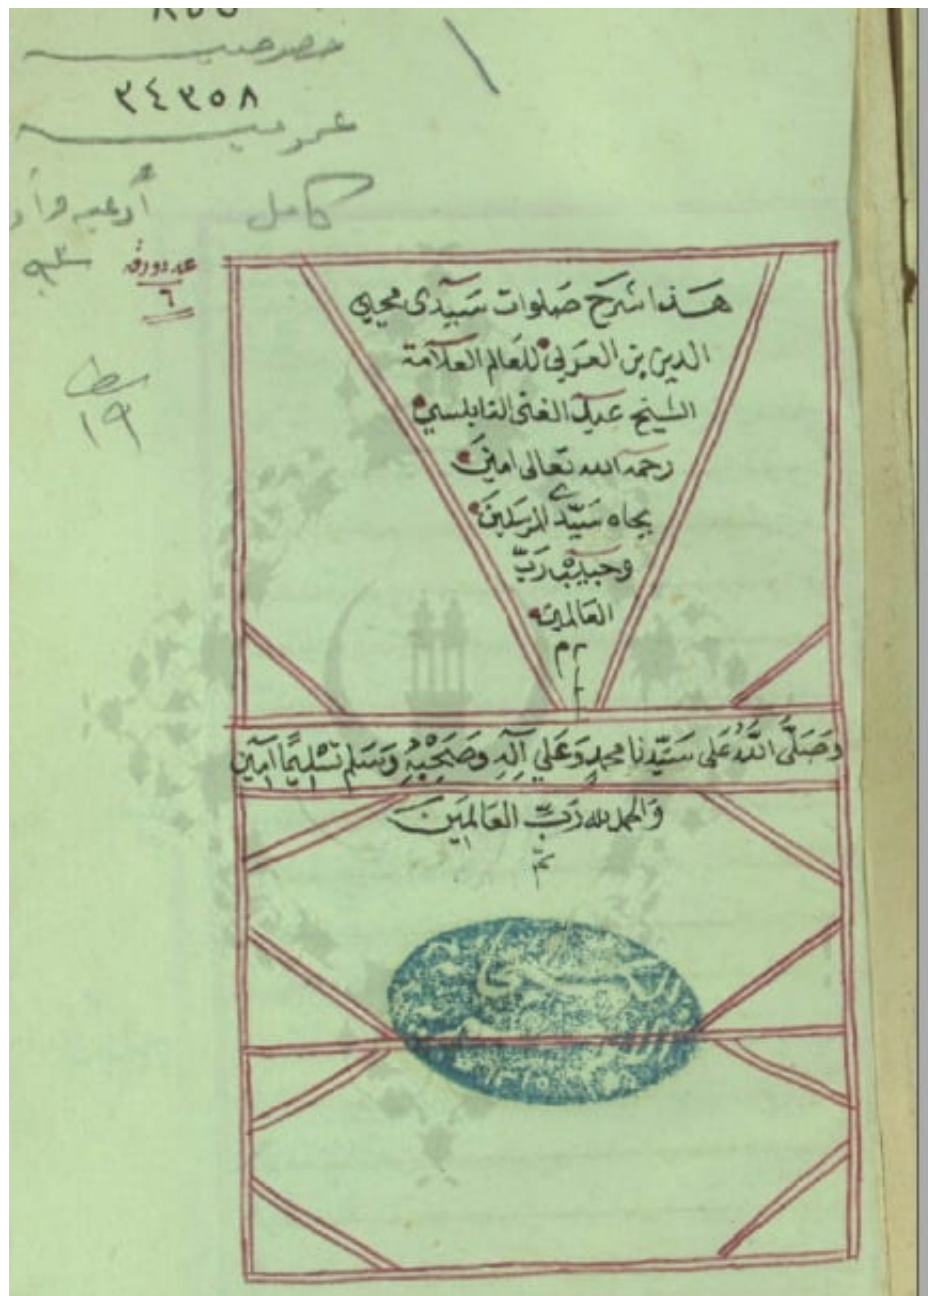 ٨٥٥
خصوصيه
٣٤٣٥٨
عموميه
كامل
أدعيه وأ
٩٣
عدد ورقه
٦
سطر
١٩
هَذا شَرحَ صَلوات سَيّدى محيي
الدين بن العَرَبي للعَالم العَلاّمة
الشيخ عَبد الغنى النابلسي
رحمه الله تعالى امين
بجاه سَيّد المرسَلينَ
وحَبيبْ رَبّ
العَالمين
م م
م
وَصَلَّى اللَّهُ عَلى سَيّدنا محمدٍ وَعَلي آلِهِ وصَحْبِهِ وَسَلم تسْليمًا آمين
وَالحمد لله رَبِّ العَالمِينَ
تم